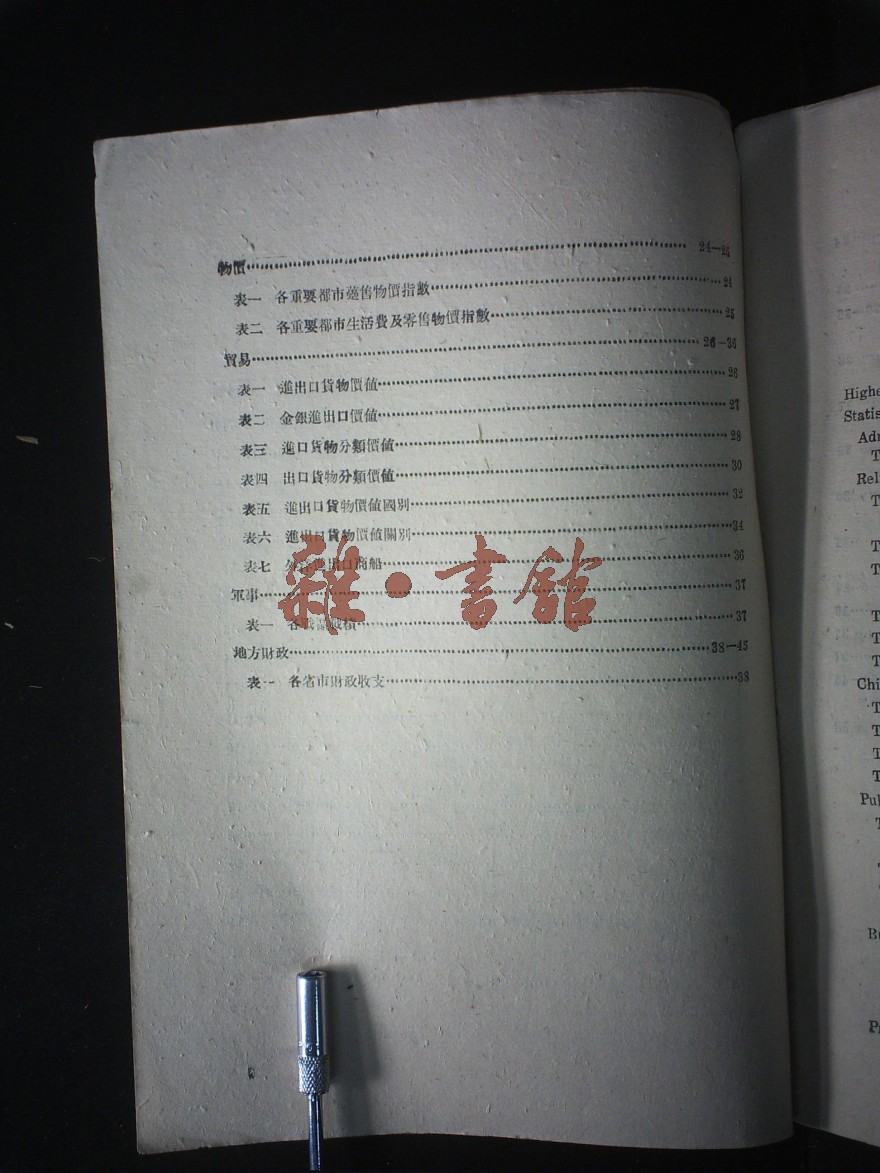 物價 24—25
表一 各重要都市躉售物價指數 24
表二 各重要都市生活費及零售物價指數 25
貿易 26—36
表一 進出口貨物價值 26
表二 金銀進出口價值 27
表三 進口貨物分類價值 28
表四 出口貨物分類價值 30
表五 進出口貨物價值國別 32
表六 進出口貨物價值關別 34
表七 進出口商船 36
軍事 37
表一 37
地方財政 38—45
表一 各省市財政收支 38
雜·書館
Statis
Rel
T
T
T
T
T
T
Chi
T
T
T
T